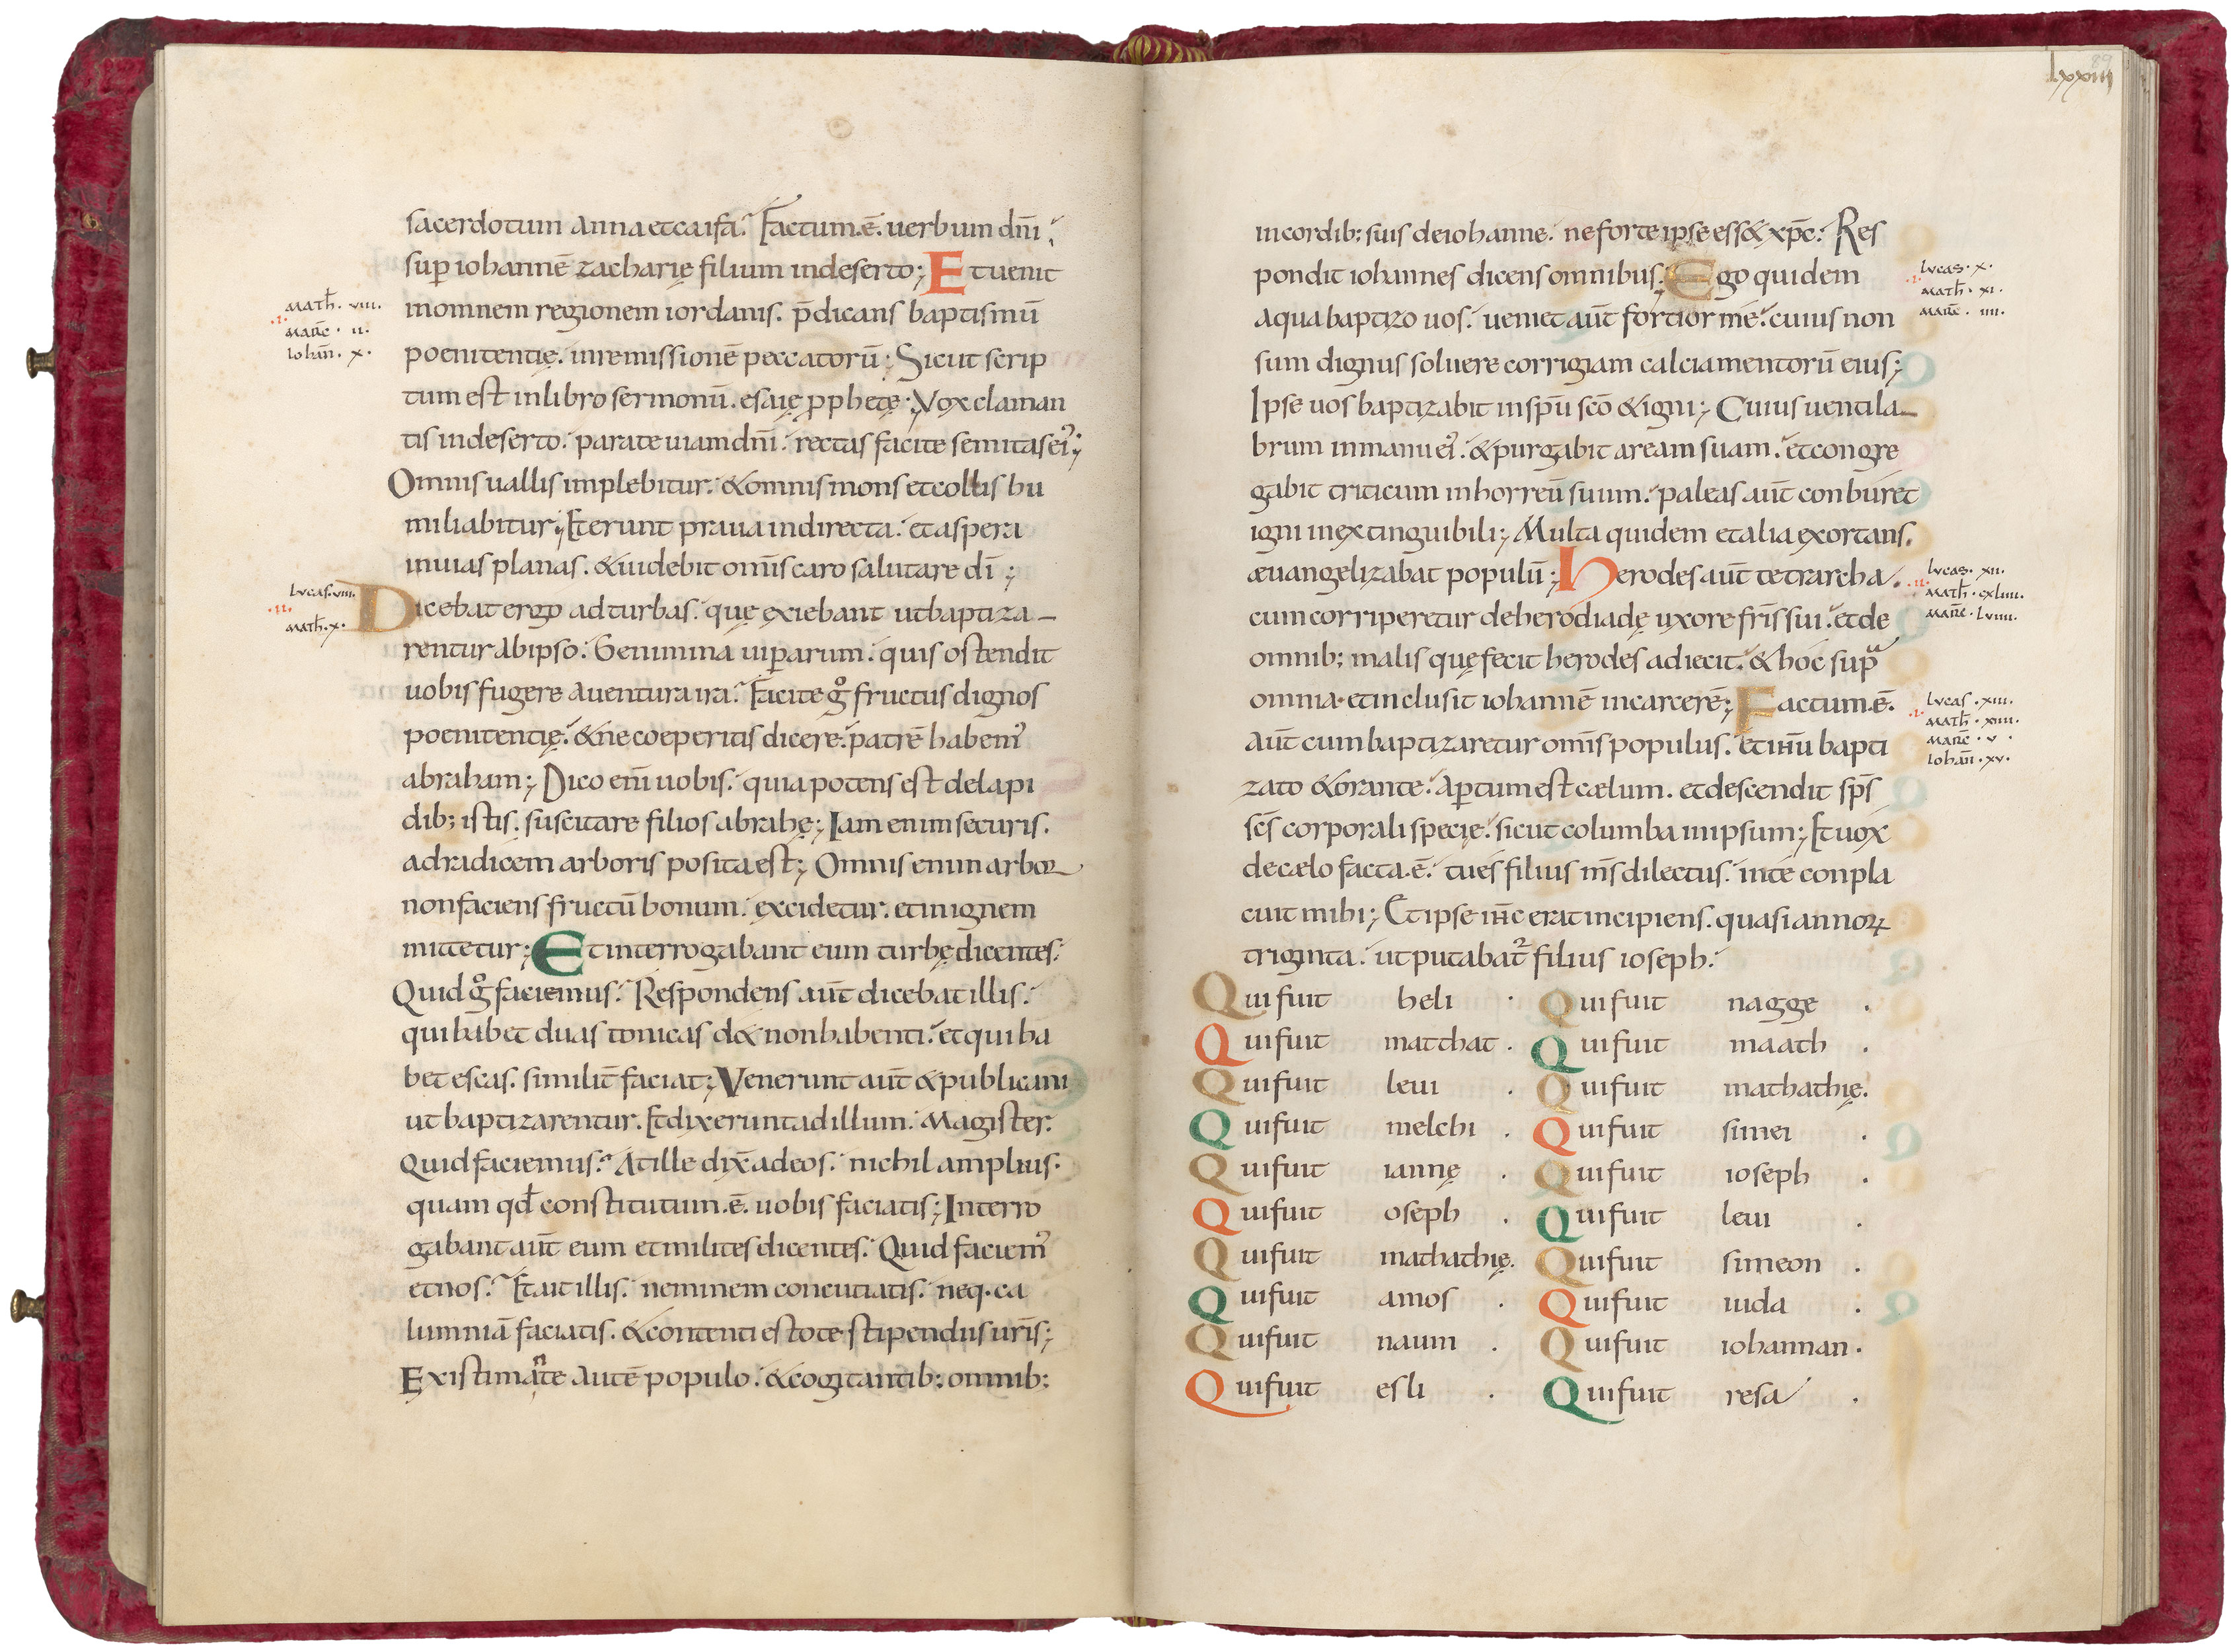 sacerdotum anna et caifa. Factum .ē. uerbum dn̄i
sup̄ iohannē zacharię filium in deserto; Et uenit
in omnem regionem iordanis. p̄dicans baptismū
poenitentię. in remissionē peccatorū; Sicut scrip
tum est in libro sermonū. esaię pphetę; Vox claman
tis in deserto. parate uiam dn̄i. rectas facite semitas ei᾿;
Omnis uallis implebitur. & omnis mons et collis hu
miliabitur; Et erunt praua in directa. et aspera
in uias planas. & uidebit omīs caro salutare dī;
Dicebat ergo ad turbas. quę exiebant ut baptiza-
rentur ab ipso. Genimina uip̄arum. quis ostendit
uobis fugere a uentura ira. Facite gͦ fructus dignos
poenitentię. & ne coeperitis dicere. patrē habem᾿
abraham; Dico em̄ uobis. quia potens est de lapi
dib; istis. suscitare filios abrahę; Iam enim securis.
ad radicem arboris posita est; Omnis enim arbor
non faciens fructū bonum. excidetur. et in ignem
mittetur; Et interrogabant eum turbę dicentes.
Quid gͦ faciemus. Respondens aūt dicebat illis.
qui habet duas tonicas d& non habenti. et qui ha
bet escas. similit̄ faciat; Venerunt aūt & publicani
ut baptizarentur. Et dixerunt ad illum. Magister.
Quid faciemus. At ille dix̄ ad eos. nichil amplius.
quam qd̄ constitutum .ē. uobis faciatis; Interro
gabant aūt eum et milites dicentes. Quid faciem᾿
et nos. Et ait illis. neminem concutiatis. neq. ca
lumniā faciatis. & contenti estote stipendiis ur̄is;
Existimante autē populo. & cogitantib; omnib;
Math̄. viii.
Marc̄. ii.
Iohan̄. x.
Lucas. viii.
.ii.
Math̄. x.
lxxiiii
89
in cordib; suis de iohanne. ne forte ipse ess& xp̄c. Res
pondit iohannes dicens omnibus; Ego quidem
aqua baptizo uos. ueniet aūt fortior me. cuius non
sum dignus soluere corrigiam calciamentorū eius;
Ipse uos baptizabit in sp̄u scō & igni; Cuius uentila-
brum in manu ei᾿. & purgabit aream suam. et congre
gabit triticum in horreū suum. paleas aūt conburet
igni inextinguibili; Multa quidem et alia exortans.
æuangelizabat populū; Herodes aūt tetrarcha.
cum corriperetur de herodiadę uxore fr̄is sui. et de
omnib; malis quę fecit herodes adiecit. & hoc supᵃ
omnia. et inclusit iohannē in carcerē; Factum .ē.
aūt cum baptizaretur omīs populus. et ih̄u bapti
zato & orante. ap̄tum est cælum. et descendit sp̄s
sc̄s corporali specię. sicut columba in ipsum; Et uox
de cælo facta .ē. tu es filius m̄s dilectus. in te conpla
cuit mihi; Et ipse ih̄c erat incipiens. quasi annoꝝ
triginta. ut putabat᷑ filius ioseph.
Qui fuit heli . Qui fuit nagge .
Qui fuit matthat . Qui fuit maath .
Qui fuit leui . Qui fuit mathathię.
Qui fuit melchi . Qui fuit simei .
Qui fuit iannę . Qui fuit ioseph .
Qui fuit oseph . Qui fuit leui .
Qui fuit mathathię. Qui fuit simeon .
Qui fuit amos . Qui fuit iuda .
Qui fuit naum . Qui fuit iohannan .
Qui fuit esli . Qui fuit resa .
Lucas. x.
Math̄. xi.
Marc̄. iiii.
Lucas. xii.
.ii.
Math̄. cxliiii.
Marc̄. lviiii.
Lucas. xiii.
Math̄. xiiii.
Marc̄. v.
Iohan̄. xv.